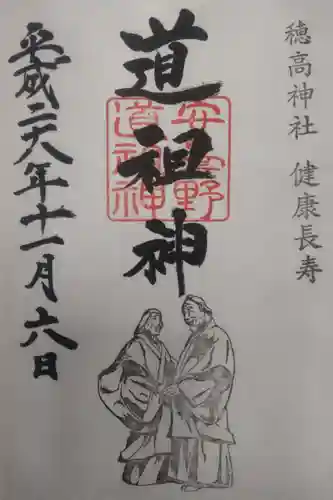 穂高神社 健康長寿
道祖神
安曇野
道祖神
平成二十八年十一月六日